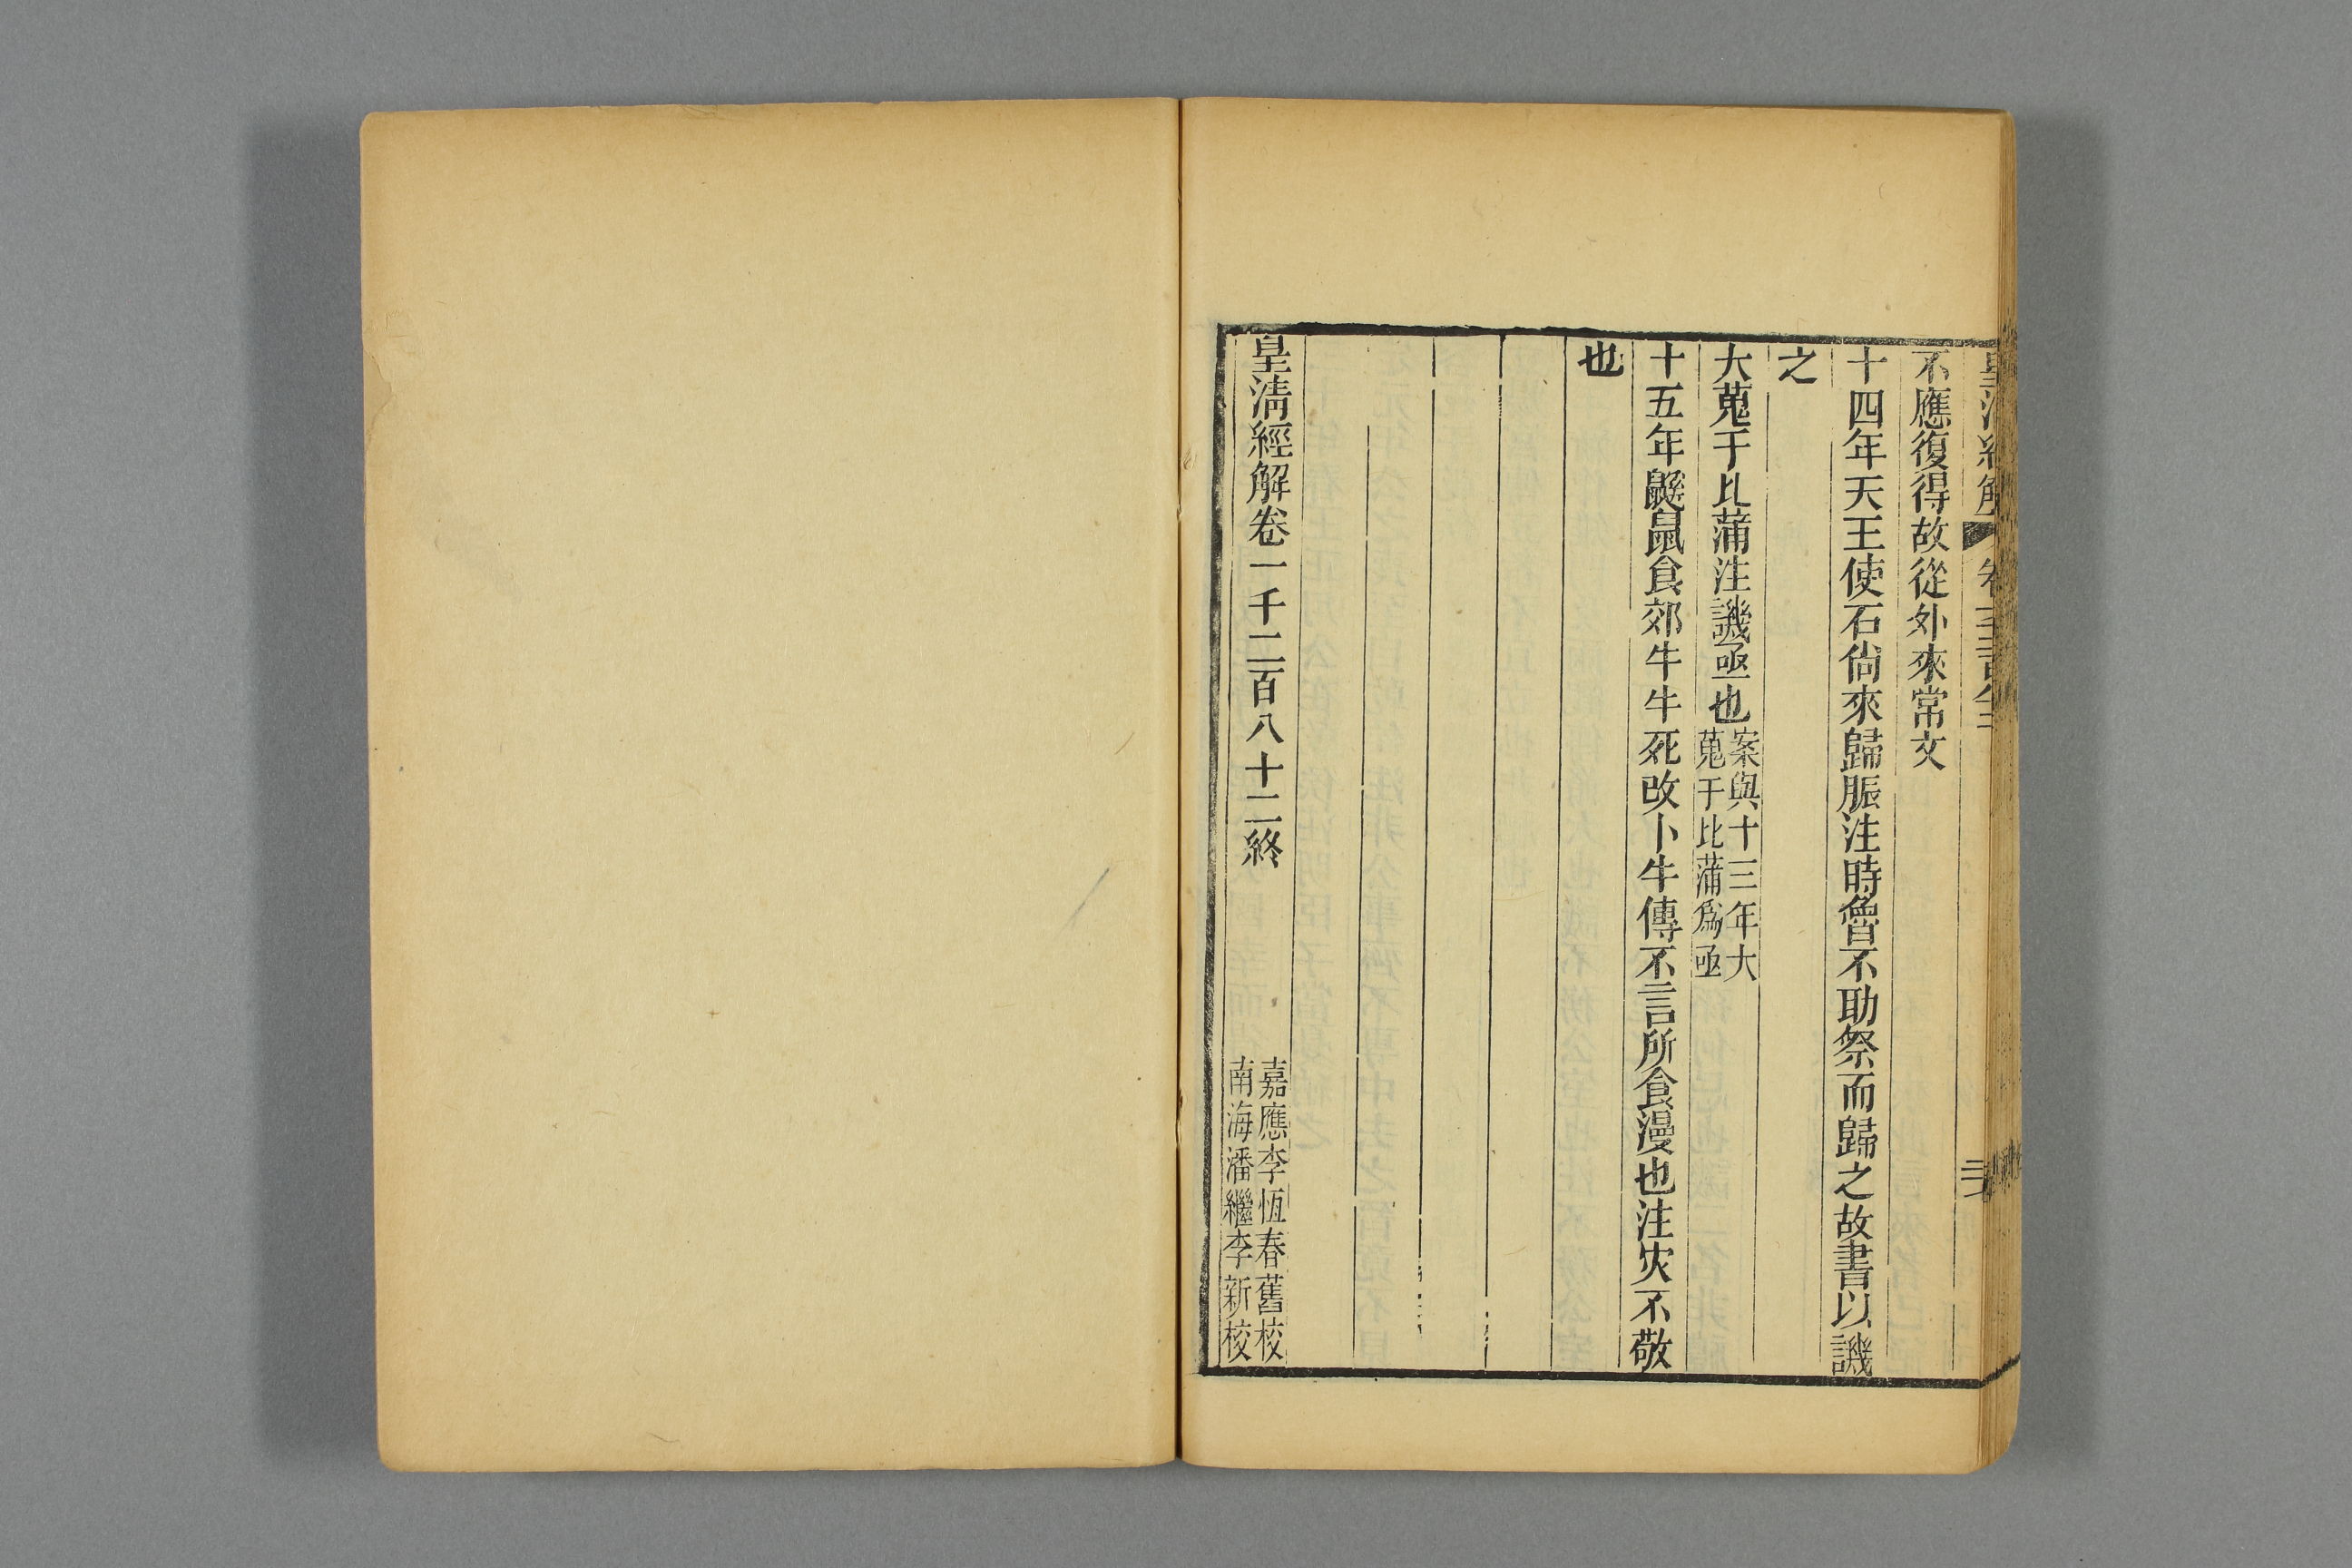 皇清經解 卷一千二百八十二
不應復得故從外來常文
十四年天王使石尙來歸脤注時魯不助祭而歸之故書以譏
之
大蒐于比蒲注譏亟也案與十三年大
蒐于比蒲爲亟
十五年鼷鼠食郊牛牛死改卜牛傳不言所食漫也注災不敬
也
皇淸經解卷一千二百八十二終
嘉應李恆春舊校
南海潘繼李新校